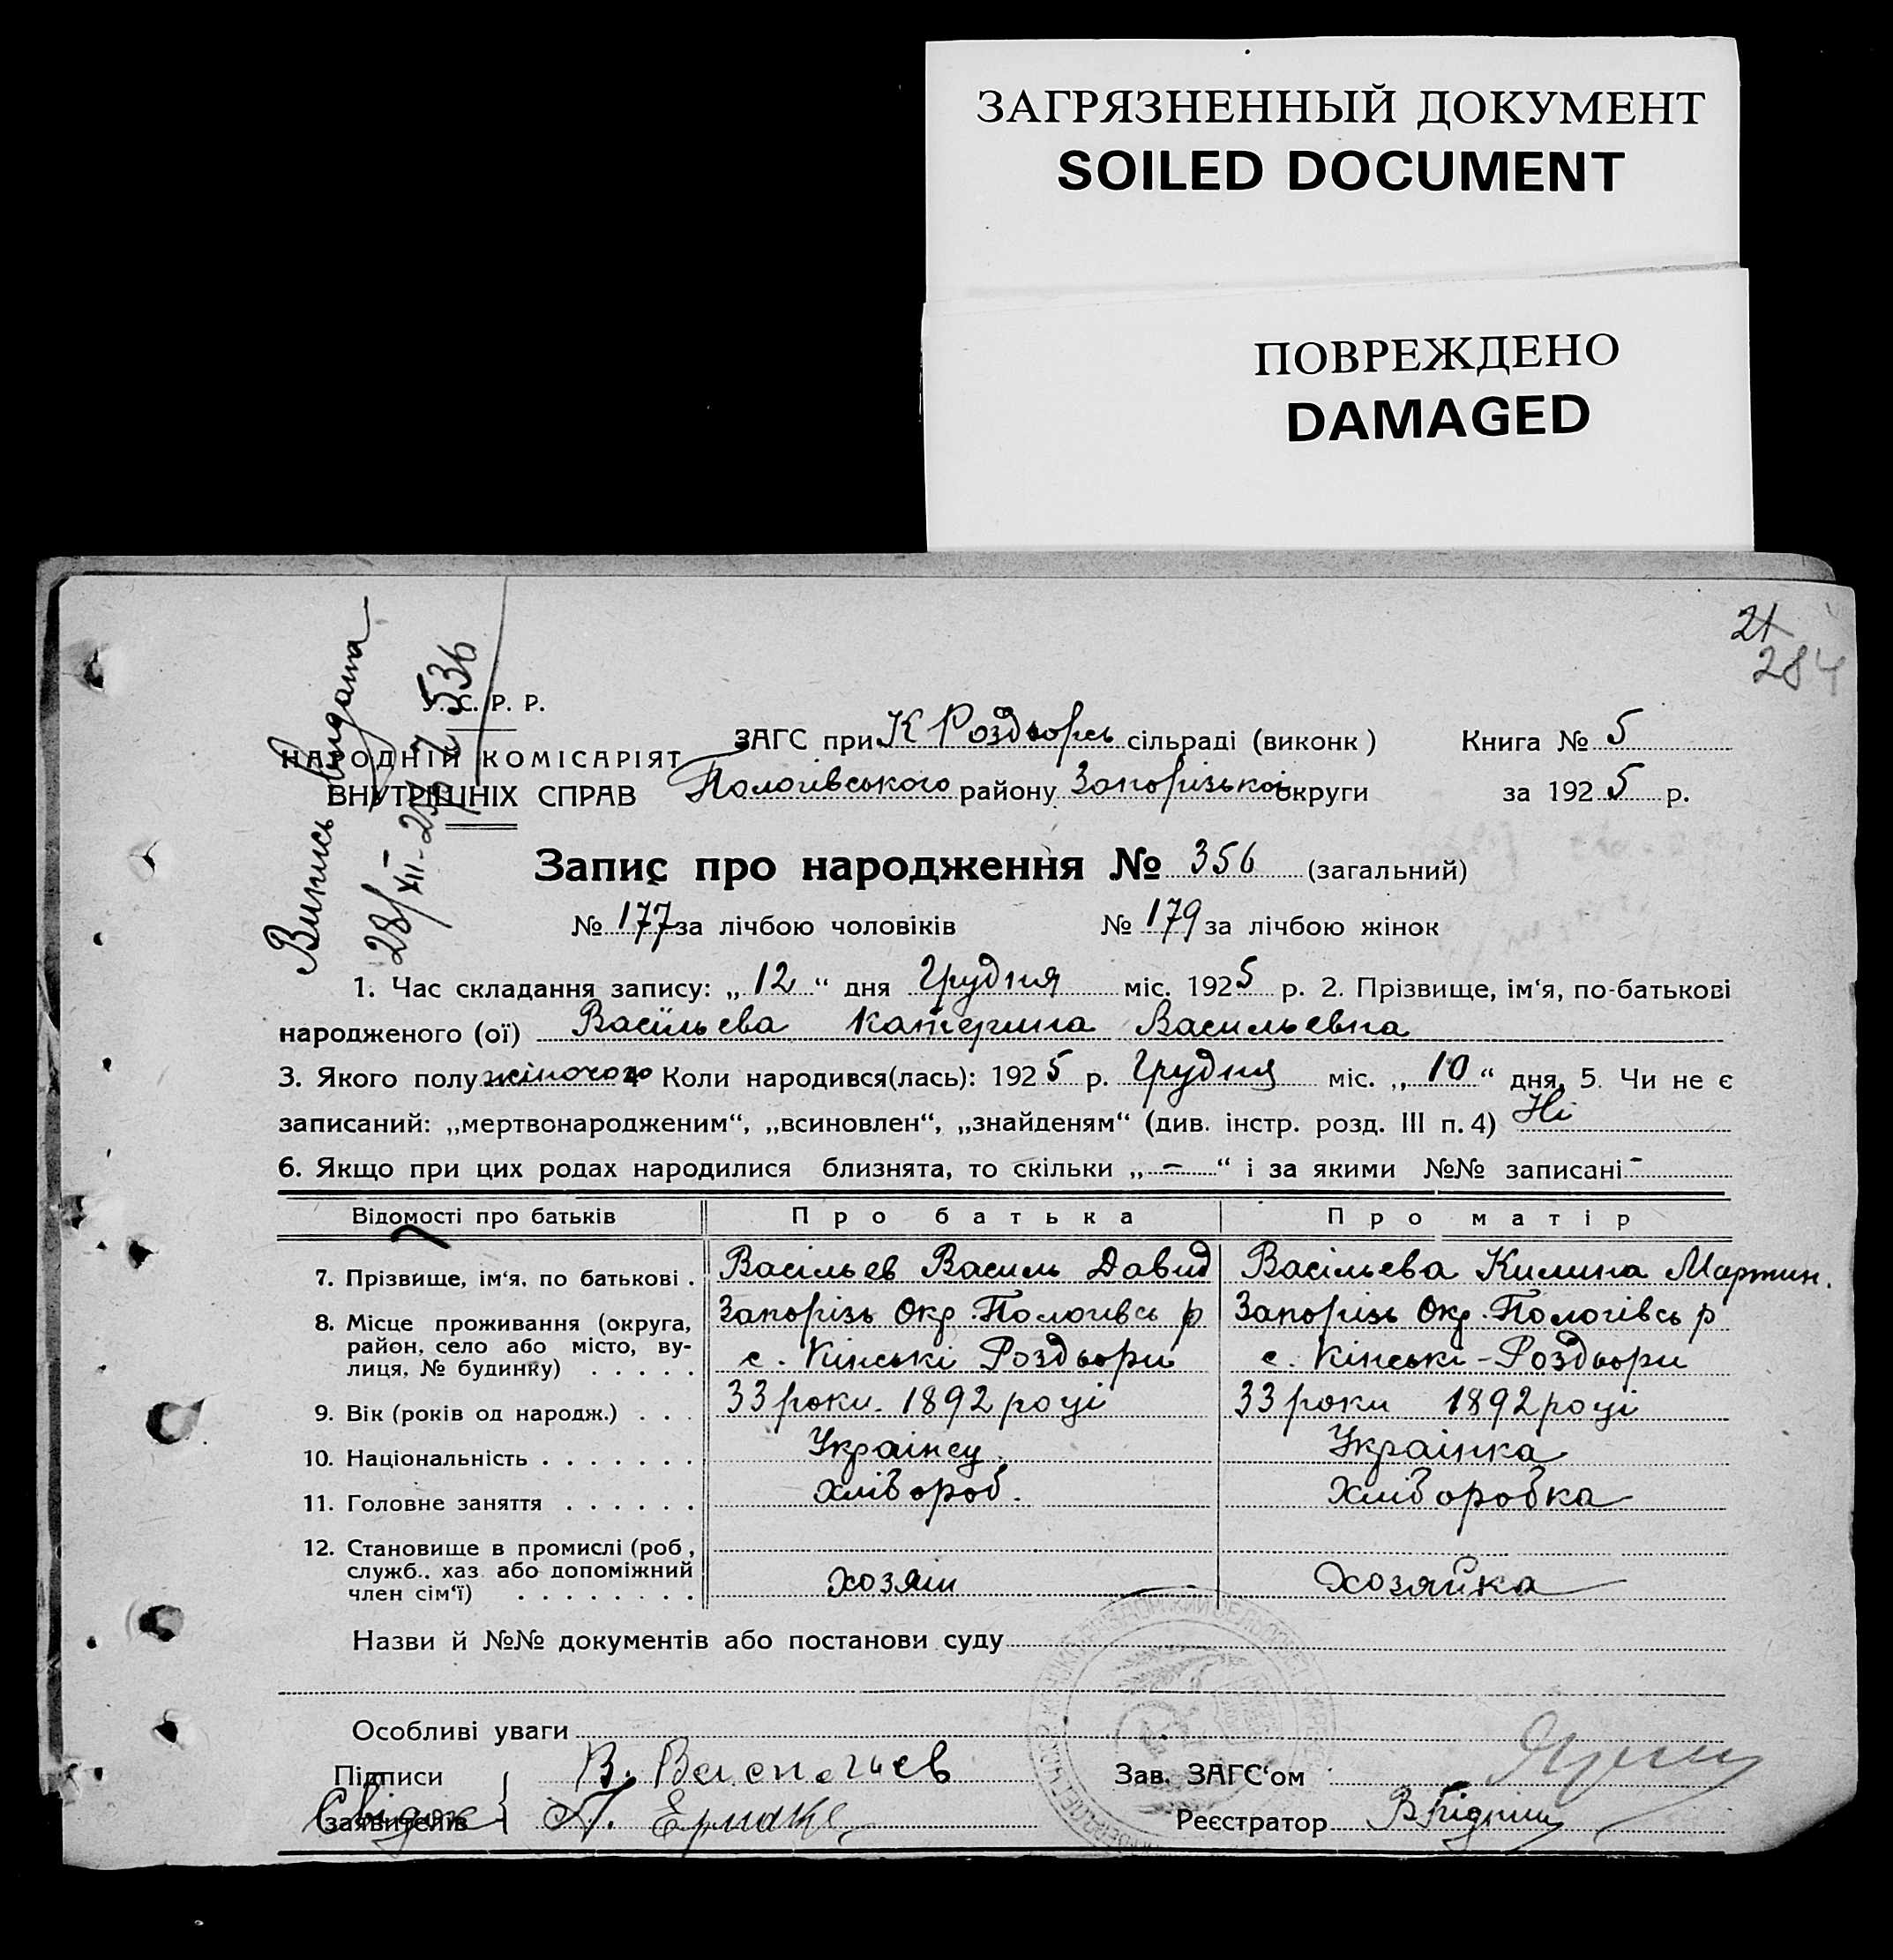 ЗАГРЯЗНЕННЫЙ ДОКУМЕНТ
SOILED DOCUMENT
ПОВРЕЖДЕНО
DAMAGED
21
284
Випись видана
28/XII-25 № 536
У. С. Р. Р.
НАРОДНІЙ КОМІСАРІЯТ
ВНУТРІШНІХ СПРАВ
ЗАГС при К Роздорсь сільраді (виконк) Книга № 5
Пологівського району Запорізької округи за 1925 р.
Запис про народження № 356 (загальний)
№ 177 за лічбою чоловіків № 179 за лічбою жінок
1. Час складання запису: „12“ дня Грудня міс. 1925 р. 2. Прізвище, ім‘я, по-батькові
народженого (ої) Васільева Катерина Васильевна
3. Якого полу жіночого 4 Коли народився(лась): 1925 р. Грудня міс. „10“ дня, 5. Чи не є
записаний: „мертвонародженим“, „всиновлен“, „знайденям“ (див. інстр. розд. III п. 4) Ні
6. Якщо при цих родах народилися близнята, то скільки „-“ і за якими №№ записані -
Відомості про батьків Про батька Про матір
7. Прізвище, ім‘я, по батькові . Васільев Василь Давид Васільева Килина Мартин.
8. Місце проживання (округа, Запорізь Окр. Пологівсь р Запорізь Окр. Пологівсь р
район, село або місто, ву-
лиця, № будинку) . . . . . с. Кінські Роздори с. Кінські-Роздори
9. Вік (років од народж.) . . . 33 роки. 1892 році 33 роки 1892 році
10. Національність . . . . . . . Украінец. Украінка
11. Головне заняття . . . . . . Хлівороб. Хліборобка
12. Становище в промислі (роб,
служб., хаз або допоміжний
член сім‘ї) . . . . . . . . хозяін Хозяйка
Назви й №№ документів або постанови суду
Особливі уваги
Підписи В. Васильев Зав. ЗАГС‘ом
заявителів Свідок Реєстратор